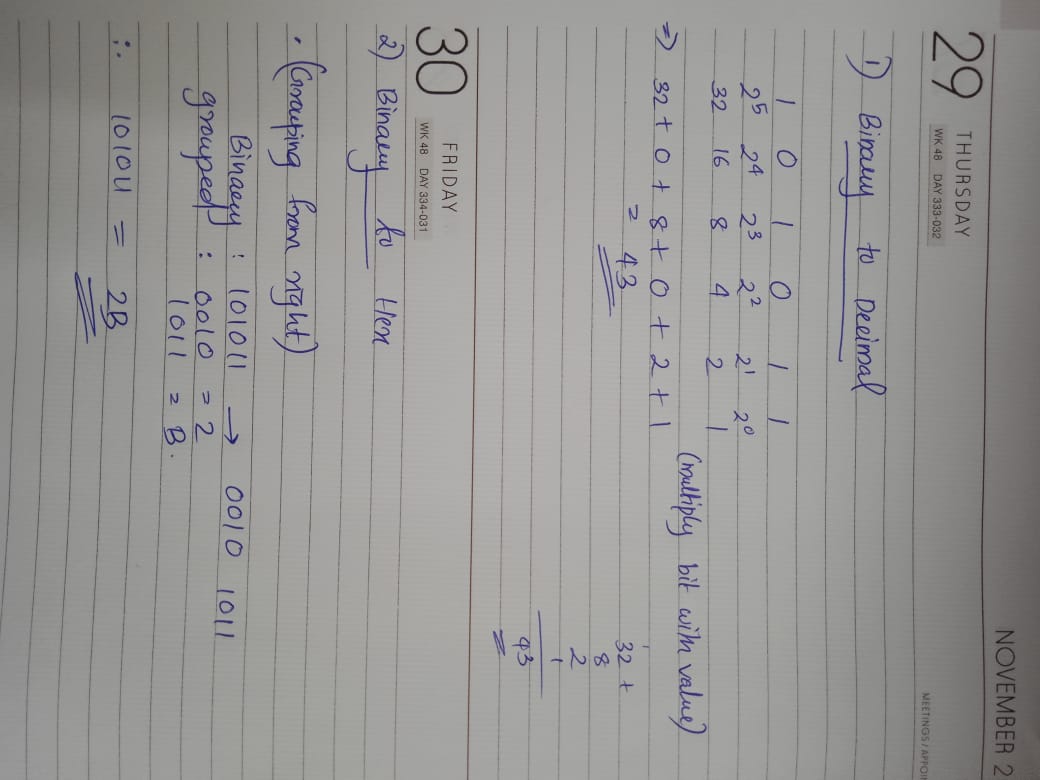 NOVEMBER 2
29 THURSDAY
WK 48 DAY 333-032
MEETINGS / APPOI
1) Binary to Decimal
1 0 1 0 1 1
2⁵ 2⁴ 2³ 2² 2¹ 2⁰
32 16 8 4 2 1
(multiply bit with value)
⇒ 32 + 0 + 8 + 0 + 2 + 1
= 43
32 +
8
2
1
43
30 FRIDAY
WK 48 DAY 334-031
2) Binary to Hex
• (Grouping from right)
Binary : 101011 → 0010 1011
grouped : 0010 = 2
1011 = B.
∴ 101011 = 2B